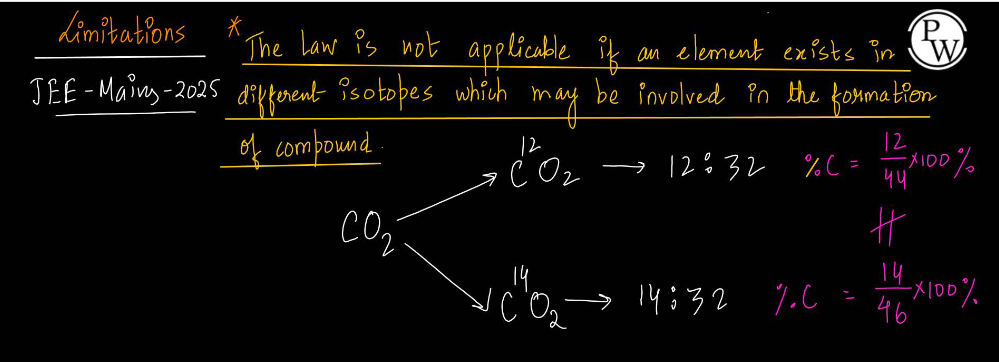 Limitations
* The Law is not applicable if an element exists in
PW
JEE-Mains-2025
different isotopes which may be involved in the formation
of compound.
¹²CO₂ → 12:32 %C = 12/44 × 100%
CO₂
≠
¹⁴CO₂ → 14:32 %C = 14/46 × 100%